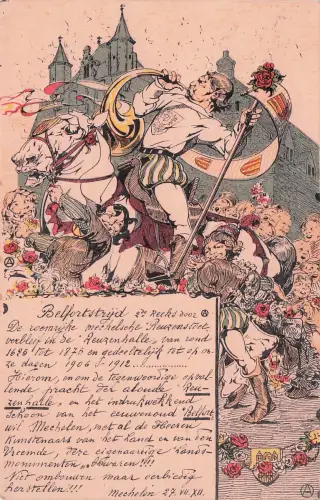 Belfortstrijd 2de Reeks door
De roemrijke mechelsche Reuzenstoet
verbleef in de "Reuzenhalle", van rond
1686 tot 1876 en gedeeltelijk tot op on-
ze dagen 1906 & 1912
Hierom, en om de tegenwoordige opval-
lende pracht der aloude Reu-
zenhalle, en het indrukwekkend
schoon van het eeuwenoud Belfort,
wil Mechelen, met al de Heeren
Kunstenaars van het Land en van den
Vreemde, deze eigenaardige Lands-
monumenten, bewaren!!!
Niet ombouwen maar eerbiedig
herstellen!!!
Mechelen 27. VII. XII.